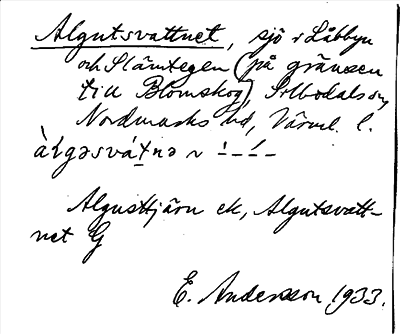 Algutsvattnet, sjö v Låbbyn
och Slämtegen (på gränsen
till Blomskog) Silbodals sn,
Nordmarks hd, Värml. l.
àlgəsvátnə ~ -́ - -́ -
Algusttjärn ek, Algutsvatt-
net G
E. Andersson 1933.